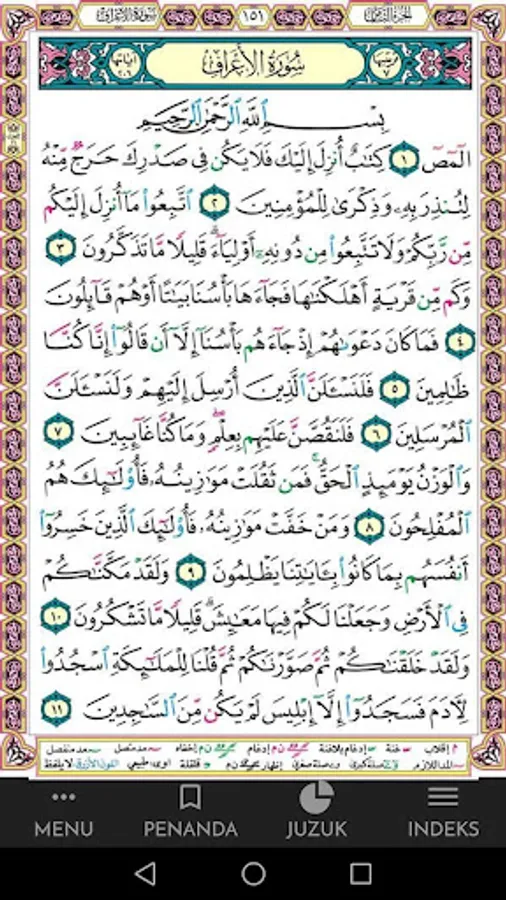 سورة الأعراف
١٥١
سُورَةُ الأَعْرَافِ
ترتيبها
٧
آياتها
٢٠٦
بِسْمِ اللَّهِ الرَّحْمَٰنِ الرَّحِيمِ
الٓمٓصٓ ١ كِتَٰبٌ أُنزِلَ إِلَيْكَ فَلَا يَكُن فِى صَدْرِكَ حَرَجٌ مِّنْهُ
لِتُنذِرَ بِهِۦ وَذِكْرَىٰ لِلْمُؤْمِنِينَ ٢ ٱتَّبِعُوا۟ مَآ أُنزِلَ إِلَيْكُم
مِّن رَّبِّكُمْ وَلَا تَتَّبِعُوا۟ مِن دُونِهِۦٓ أَوْلِيَآءَ ۗ قَلِيلًا مَّا تَذَكَّرُونَ ٣
وَكَم مِّن قَرْيَةٍ أَهْلَكْنَٰهَا فَجَآءَهَا بَأْسُنَا بَيَٰتًا أَوْ هُمْ قَآئِلُونَ
٤ فَمَا كَانَ دَعْوَىٰهُمْ إِذْ جَآءَهُم بَأْسُنَآ إِلَّآ أَن قَالُوٓا۟ إِنَّا كُنَّا
ظَٰلِمِينَ ٥ فَلَنَسْـَٔلَنَّ ٱلَّذِينَ أُرْسِلَ إِلَيْهِمْ وَلَنَسْـَٔلَنَّ
ٱلْمُرْسَلِينَ ٦ فَلَنَقُصَّنَّ عَلَيْهِم بِعِلْمٍ ۖ وَمَا كُنَّا غَآئِبِينَ ٧
وَٱلْوَزْنُ يَوْمَئِذٍ ٱلْحَقُّ ۚ فَمَن ثَقُلَتْ مَوَٰزِينُهُۥ فَأُو۟لَٰٓئِكَ هُمُ
ٱلْمُفْلِحُونَ ٨ وَمَنْ خَفَّتْ مَوَٰزِينُهُۥ فَأُو۟لَٰٓئِكَ ٱلَّذِينَ خَسِرُوٓا۟
أَنفُسَهُم بِمَا كَانُوا۟ بِـَٔايَٰتِنَا يَظْلِمُونَ ٩ وَلَقَدْ مَكَّنَّٰكُمْ
فِى ٱلْأَرْضِ وَجَعَلْنَا لَكُمْ فِيهَا مَعَٰيِشَ ۗ قَلِيلًا مَّا تَشْكُرُونَ ١٠
وَلَقَدْ خَلَقْنَٰكُمْ ثُمَّ صَوَّرْنَٰكُمْ ثُمَّ قُلْنَا لِلْمَلَٰٓئِكَةِ ٱسْجُدُوا۟
لِـَٔادَمَ فَسَجَدُوٓا۟ إِلَّآ إِبْلِيسَ لَمْ يَكُن مِّنَ ٱلسَّٰجِدِينَ ١١
م إقلاب غنة إدغام بلاغنة ن م إدغام ن م إخفاء مد متصل مد منفصل
المد اللازم صلة كبرى و صلة صغرى قلقلة اوى طبيعي اللون الأزرق لا يلفظ
MENU
PENANDA
JUZUK
INDEKS